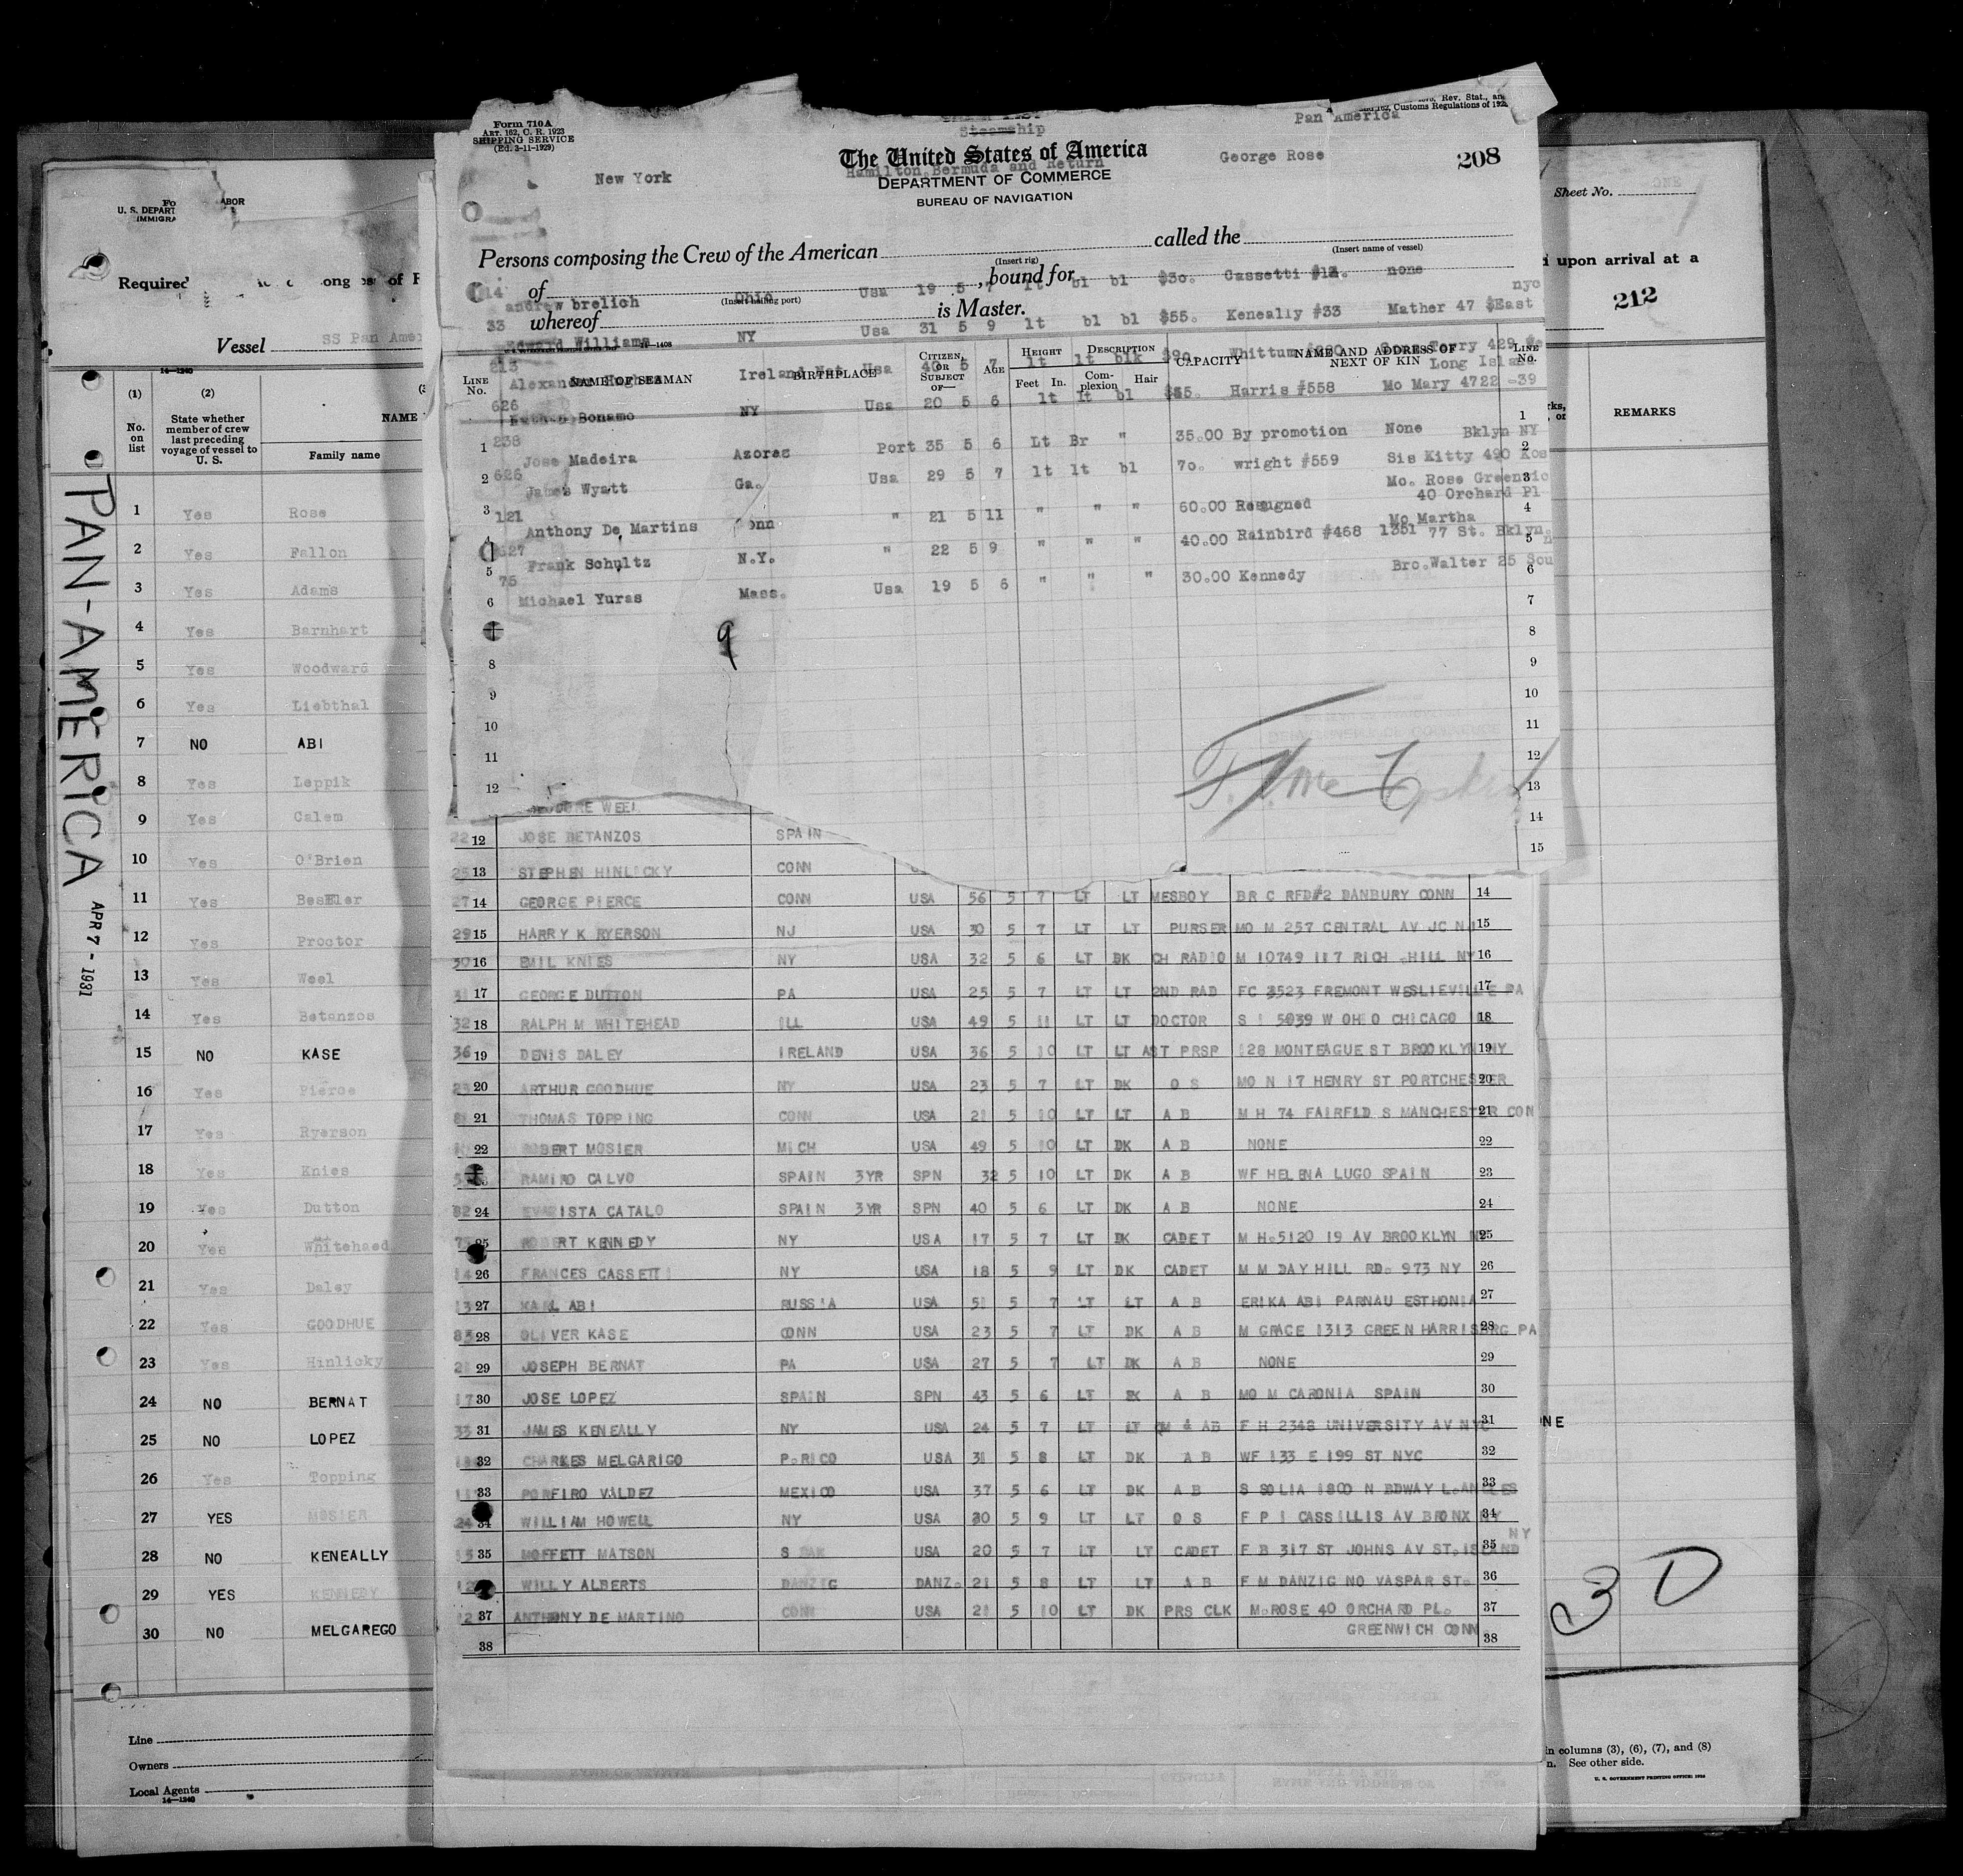 Form 710A
ART. 162, C. R. 1923
SHIPPING SERVICE
(Ed. 3-11-1929)
Steamship
Pan America
Rev. Stat., an
162, Customs Regulations of 192
The United States of America
Hamilton Bermuda and Return
George Rose
208
New York
DEPARTMENT OF COMMERCE
BUREAU OF NAVIGATION
Persons composing the Crew of the American called the
(Insert rig) (Insert name of vessel)
of , bound for
(Insert hailing port)
whereof is Master.
14 andrew brelich Ohio Usa 19 5 7 lt bl bl $30. Cassetti none
33 Edward Williams NY Usa 31 5 9 lt bl bl $55. Keneally #33 Mather 47 East nyc
14-1408
LINE No. NAME OF SEAMAN BIRTHPLACE CITIZEN, OR SUBJECT OF— AGE HEIGHT Feet In. DESCRIPTION Complexion Hair CAPACITY NAME AND ADDRESS OF NEXT OF KIN LINE No.
213 Alexander Hughes Ireland Nat Usa 40 5 7 lt lt blk $90 Whittum Terry 429 Long Is
626 Bonamo NY Usa 20 5 6 lt lt bl Harris #558 Mo Mary 4722 -39
1 238 Jose Madeira Azores Port 35 5 6 Lt Br " 35.00 By promotion None Bklyn NY
2 626 James Wyatt Ga. Usa 29 5 7 lt lt bl 70. wright #559 Sis Kitty 490 Kos
3 121 Anthony De Martins Conn " 21 5 11 " " " 60.00 Resugned Mo. Rose Greenwic 40 Orchard Pl
627 Frank Schultz N.Y. " 22 5 9 " " " 40.00 Rainbird #468 Mo Martha 1351 77 St. Bklyn.
5 75
6 Michael Yuras Mass. Usa 19 5 6 " " " 30.00 Kennedy Bro.Walter 25 Sou
9
1
2
3
4
5
6
7
8 8
9 9
10 10
11 11
12 12
13
14
15
WEEL
22 12 JOSE BETANZOS SPAIN
25 13 STEPHEN HINLICKY CONN
27 14 GEORGE PIERCE CONN USA 56 5 7 LT LT MESBOY BR C RFD#2 DANBURY CONN 14
29 15 HARRY K RYERSON NJ USA 30 5 7 LT LT PURSER MO M 257 CENTRAL AV JC NJ 15
30 16 EMIL KNIES NY USA 32 5 6 LT DK CH RADIO M 10749 117 RICH .HILL NY 16
31 17 GEORGE DUTTON PA USA 25 5 7 LT LT 2ND RAD FC 3523 FREMONT WESLIEVILLE PA 17
32 18 RALPH M WHITEHEAD ILL USA 49 5 11 LT LT DOCTOR S I 5939 W OHIO CHICAGO 18
36 19 DENIS DALEY IRELAND USA 36 5 10 LT LT AST PRSP 128 MONTEAGUE ST BROOKLYN NY 19
23 20 ARTHUR GOODHUE NY USA 23 5 7 LT DK O S MO N 17 HENRY ST PORTCHESTER 20
21 THOMAS TOPPING CONN USA 21 5 10 LT LT A B M H 74 FAIRFLD S MANCHESTER CON 21
22 ROBERT MOSIER MICH USA 49 5 10 LT DK A B NONE 22
RAMIRO CALVO SPAIN 3YR SPN 32 5 10 LT DK A B WF HELENA LUGO SPAIN 23
82 24 EVARISTA CATALO SPAIN 3YR SPN 40 5 6 LT DK A B NONE 24
25 ROBERT KENNEDY NY USA 17 5 7 LT DK CADET M H.5120 19 AV BROOKLYN NY 25
14 26 FRANCES CASSETTI NY USA 18 5 9 LT DK CADET M M DAYHILL RD. 973 NY 26
13 27 KARL ABI RUSSIA USA 51 5 7 LT LT A B ERIKA ABI PARNAU ESTHONIA 27
83 28 OLIVER KASE CONN USA 23 5 7 LT DK A B M GRACE 1313 GREEN HARRISBRG PA 28
29 JOSEPH BERNAT PA USA 27 5 7 LT DK A B NONE 29
17 30 JOSE LOPEZ SPAIN SPN 43 5 6 LT DK A B MO M CARONIA SPAIN 30
33 31 JAMES KENEALLY NY USA 24 5 7 LT LT QM & AB F H 2348 UNIVERSITY AV NYC 31
32 CHARKES MELGARIGO P.RICO USA 31 5 8 LT DK A B WF 133 E 199 ST NYC 32
33 PORFIRO VALDEZ MEXICO USA 37 5 6 LT DK A B S SOLIA 1800 N BDWAY L.ANGLES 33
24 34 WILLIAM HOWELL NY USA 30 5 9 LT LT O S F P I CASSILLIS AV BRONX NY 34
15 35 MOFFETT MATSON S DAK USA 20 5 7 LT LT CADET F B 317 ST JOHNS AV ST.ISLAND NY 35
WILLY ALBERTS DANZIG DANZ. 21 5 8 LT LT A B F M DANZIG NO VASPAR ST. 36
12 37 ANTHONY DE MARTINO CONN USA 21 5 10 LT DK PRS CLK M.ROSE 40 ORCHARD PL. 37
38 GREENWICH CONN 38
U. S. DEPART ABOR
IMMIGRA
Required
Vessel SS Pan Amer
14-1240
(1) (2)
No. on list State whether member of crew last preceding voyage of vessel to U. S. NAME
Family name
1 Yes Rose
2 Yes Fallon
3 Yes Adams
4 Yes Barnhart
5 Yes Woodward
6 Yes Liebthal
7 NO ABI
8 Yes Leppik
9 Yes Calem
10 Yes O'Brien
11 Yes Besler
12 Yes Proctor
13 Yes Weel
14 Yes Betanzos
15 NO KASE
16 Yes Pierce
17 Yes Ryerson
18 Yes Knies
19 Yes Dutton
20 Yes Whitehaed
21 Yes Daley
22 Yes GOODHUE
23 Yes Hinlicky
24 NO BERNAT
25 NO LOPEZ
26 Yes Topping
27 YES MOSIER
28 NO KENEALLY
29 YES KENNEDY
30 NO MELGAREGO
Line
Owners
Local Agents
14-1240
PAN-AMERICA APR 7 - 1931
Sheet No. ONE
upon arrival at a
212
REMARKS
NE
3 D
in columns (3), (6), (7), and (8)
n. See other side.
U. S. GOVERNMENT PRINTING OFFICE: 1928